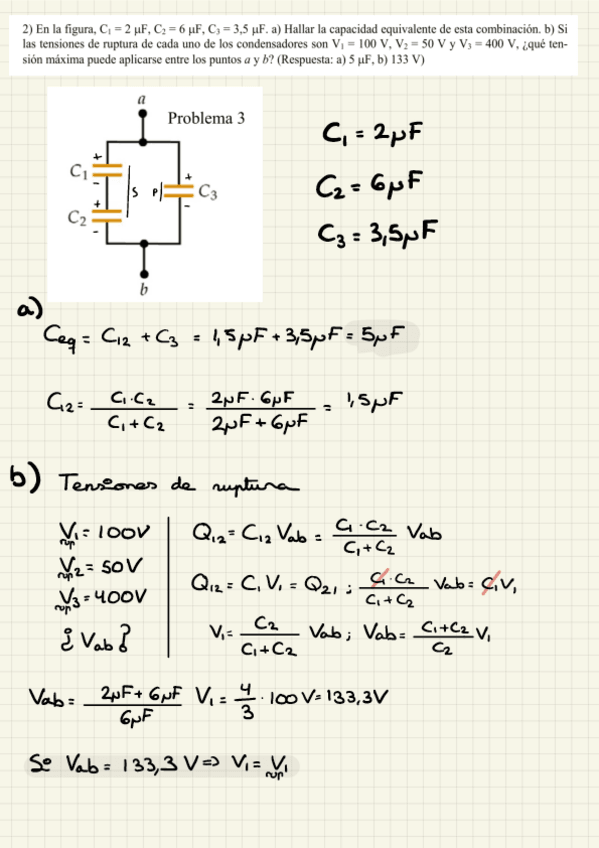 2) En la figura, C₁ = 2 μF, C₂ = 6 μF, C₃ = 3,5 μF. a) Hallar la capacidad equivalente de esta combinación. b) Si
las tensiones de ruptura de cada uno de los condensadores son V₁ = 100 V, V₂ = 50 V y V₃ = 400 V, ¿qué ten-
sión máxima puede aplicarse entre los puntos a y b? (Respuesta: a) 5 μF, b) 133 V)
a
Problema 3
C₁ = 2μF
+
C₁
-
S
P
+
C₃
-
C₂ = 6μF
+
C₂
-
C₃ = 3,5μF
b
a)
Ceq = C₁₂ + C₃ = 1,5μF + 3,5μF = 5μF
C₁₂ = C₁·C₂ / C₁+C₂ = 2μF·6μF / 2μF+6μF = 1,5μF
b) Tensiones de ruptura
V₁rup = 100V
V₂rup = 50V
V₃rup = 400V
¿Vab?
Q₁₂ = C₁₂ Vab = C₁·C₂ / C₁+C₂ Vab
Q₁₂ = C₁ V₁ = Q₂₁ ; C₁·C₂ / C₁+C₂ Vab = C₁V₁
V₁ = C₂ / C₁+C₂ Vab ; Vab = C₁+C₂ / C₂ V₁
Vab = 2μF+6μF / 6μF V₁ = 4/3 · 100V = 133,3V
Si Vab = 133,3 V ⇒ V₁ = V₁rup